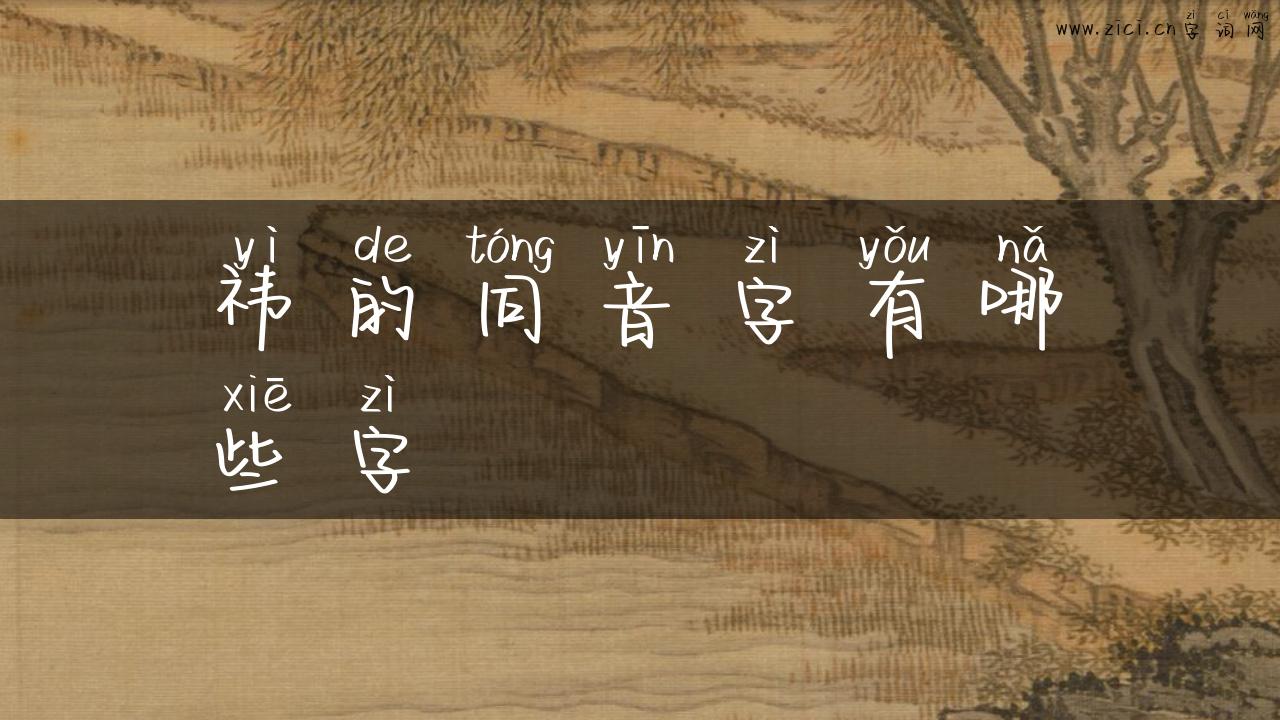 zì cí wǎng
www.zici.cn 字 词 网
yì de tóng yīn zì yǒu nǎ
祎 的 同 音 字 有 哪
xiē zì
些 字